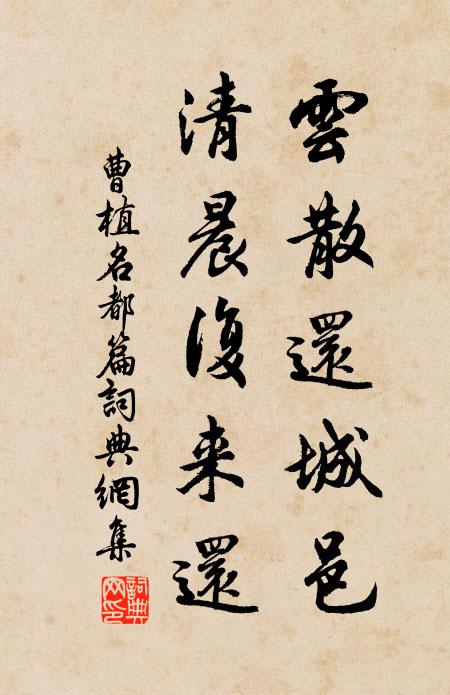 雲散還城邑
清晨復来還
曹植名都篇詞典網集
詞典